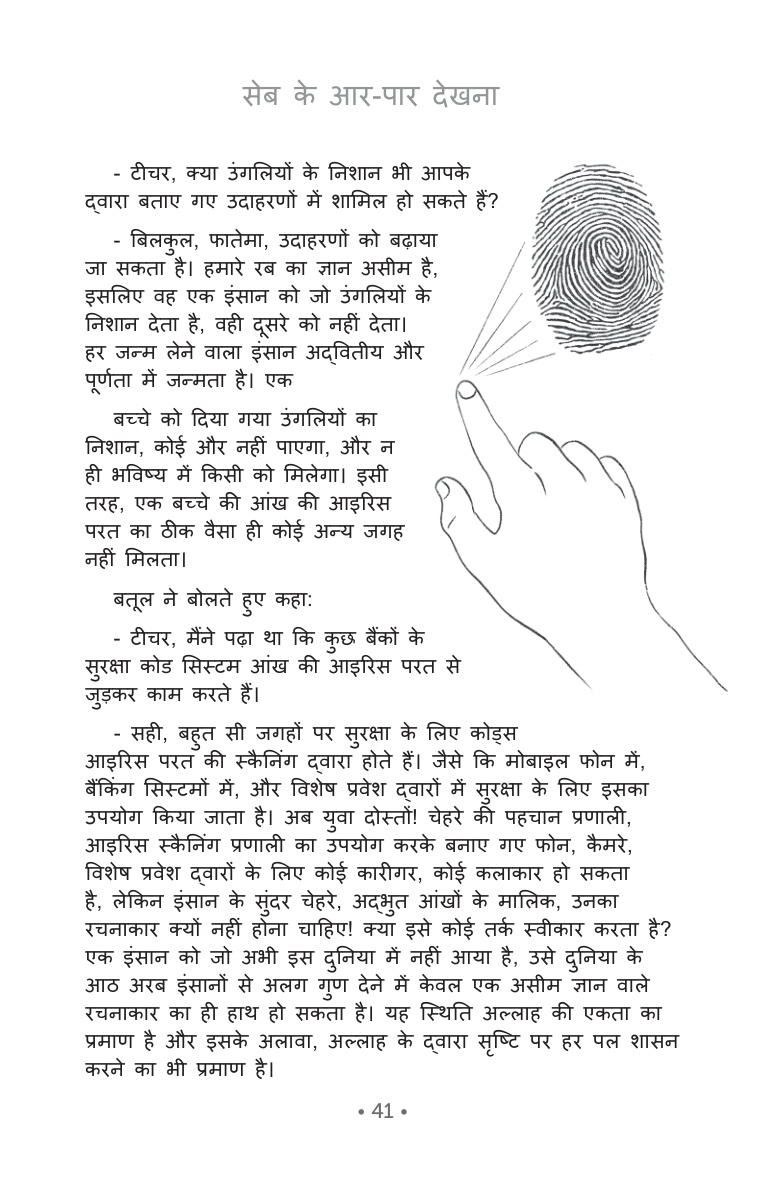 सेब के आर-पार देखना
- टीचर, क्या उंगलियों के निशान भी आपके
द्वारा बताए गए उदाहरणों में शामिल हो सकते हैं?
- बिलकुल, फातेमा, उदाहरणों को बढ़ाया
जा सकता है। हमारे रब का ज्ञान असीम है,
इसलिए वह एक इंसान को जो उंगलियों के
निशान देता है, वही दूसरे को नहीं देता।
हर जन्म लेने वाला इंसान अद्वितीय और
पूर्णता में जन्मता है। एक
बच्चे को दिया गया उंगलियों का
निशान, कोई और नहीं पाएगा, और न
ही भविष्य में किसी को मिलेगा। इसी
तरह, एक बच्चे की आंख की आइरिस
परत का ठीक वैसा ही कोई अन्य जगह
नहीं मिलता।
बतूल ने बोलते हुए कहा:
- टीचर, मैंने पढ़ा था कि कुछ बैंकों के
सुरक्षा कोड सिस्टम आंख की आइरिस परत से
जुड़कर काम करते हैं।
- सही, बहुत सी जगहों पर सुरक्षा के लिए कोड्स
आइरिस परत की स्कैनिंग द्वारा होते हैं। जैसे कि मोबाइल फोन में,
बैंकिंग सिस्टमों में, और विशेष प्रवेश द्वारों में सुरक्षा के लिए इसका
उपयोग किया जाता है। अब युवा दोस्तों! चेहरे की पहचान प्रणाली,
आइरिस स्कैनिंग प्रणाली का उपयोग करके बनाए गए फोन, कैमरे,
विशेष प्रवेश द्वारों के लिए कोई कारीगर, कोई कलाकार हो सकता
है, लेकिन इंसान के सुंदर चेहरे, अद्भुत आंखों के मालिक, उनका
रचनाकार क्यों नहीं होना चाहिए! क्या इसे कोई तर्क स्वीकार करता है?
एक इंसान को जो अभी इस दुनिया में नहीं आया है, उसे दुनिया के
आठ अरब इंसानों से अलग गुण देने में केवल एक असीम ज्ञान वाले
रचनाकार का ही हाथ हो सकता है। यह स्थिति अल्लाह की एकता का
प्रमाण है और इसके अलावा, अल्लाह के द्वारा सृष्टि पर हर पल शासन
करने का भी प्रमाण है।
• 41 •